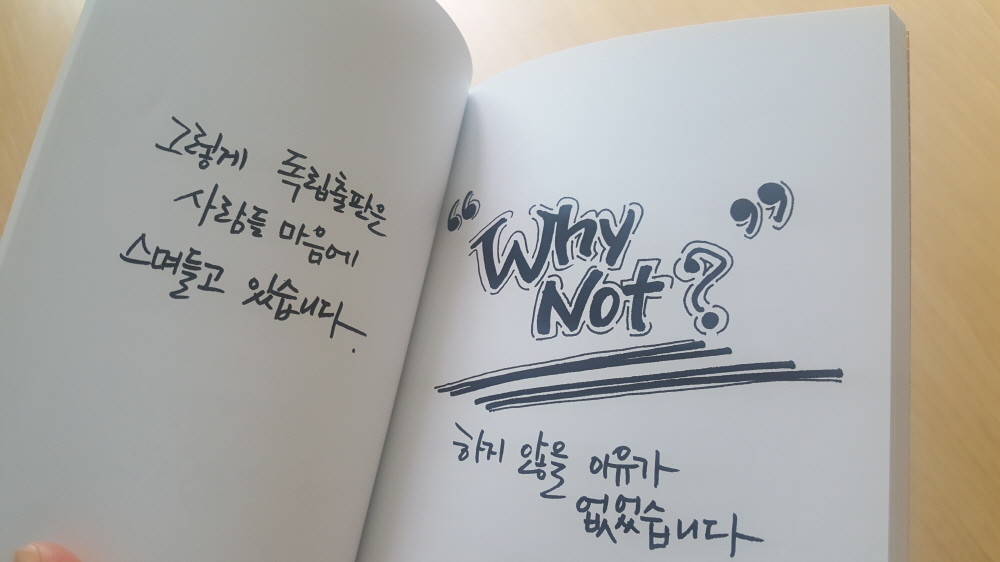 그렇게 독립출판은
사람들 마음에
스며들고 있습니다.
“Why
Not?”
하지 않을 이유가
없었습니다